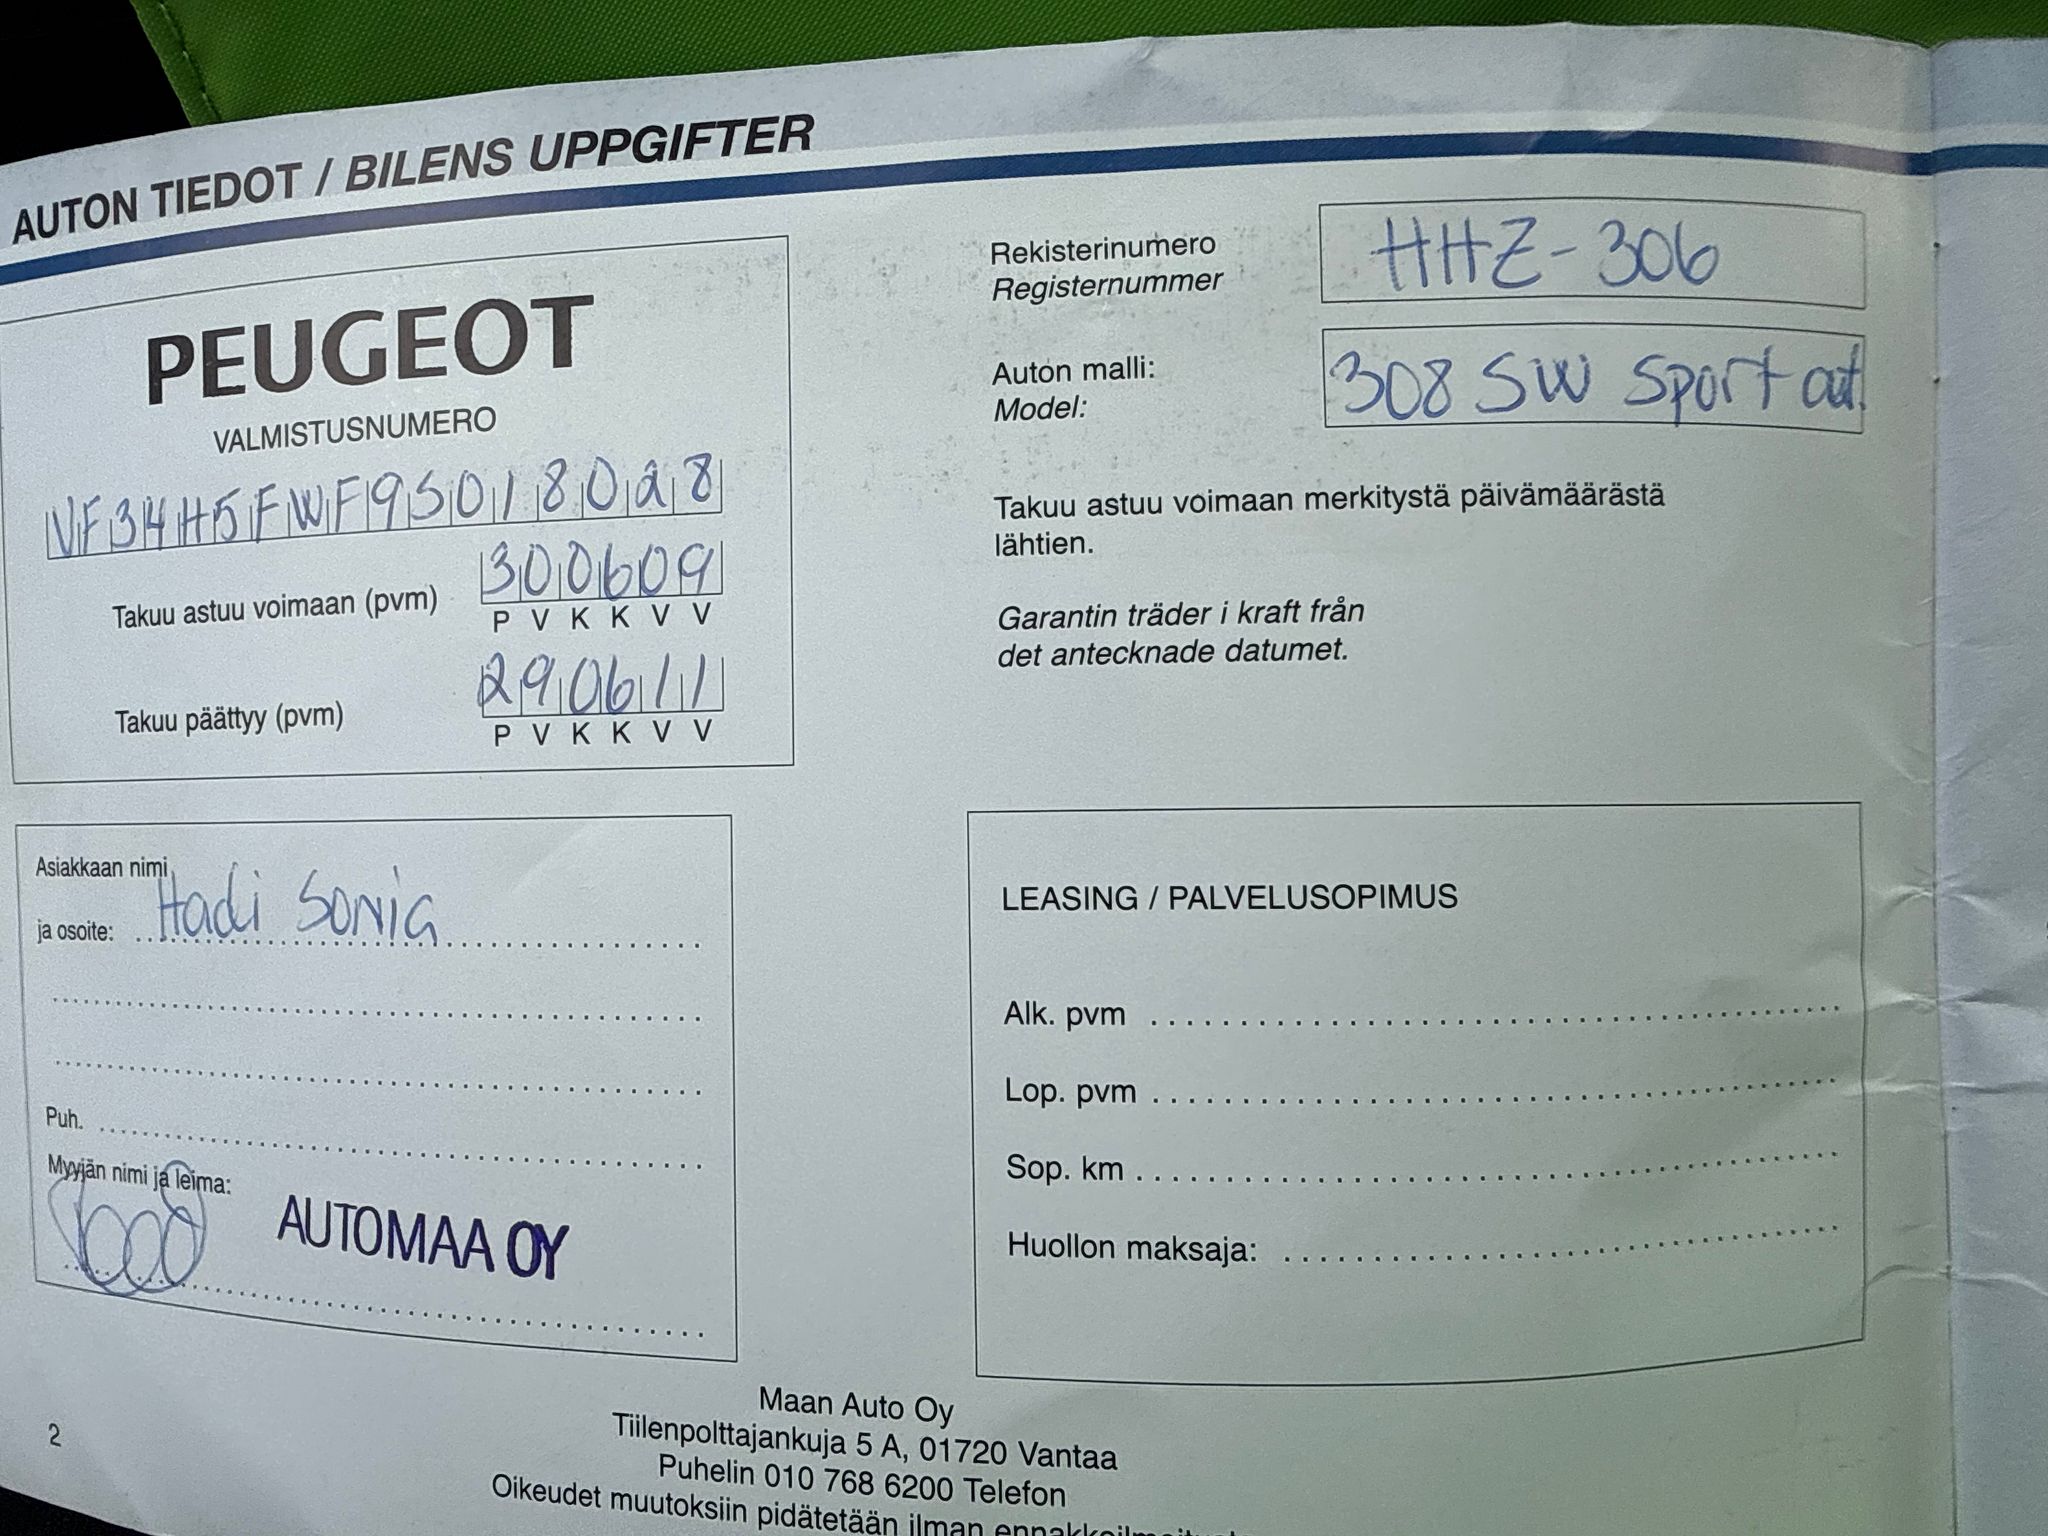 AUTON TIEDOT / BILENS UPPGIFTER
PEUGEOT
VALMISTUSNUMERO
VF34H5FWF9S018028
Takuu astuu voimaan (pvm) 300609
P V K K V V
Takuu päättyy (pvm) 290611
P V K K V V
Rekisterinumero HHZ-306
Registernummer
Auton malli: 308 SW Sport aut.
Model:
Takuu astuu voimaan merkitystä päivämäärästä
lähtien.
Garantin träder i kraft från
det antecknade datumet.
Asiakkaan nimi
ja osoite: Hadi Sonia
Puh.
Myyjän nimi ja leima:
AUTOMAA OY
LEASING / PALVELUSOPIMUS
Alk. pvm
Lop. pvm
Sop. km
Huollon maksaja:
2
Maan Auto Oy
Tiilenpolttajankuja 5 A, 01720 Vantaa
Puhelin 010 768 6200 Telefon
Oikeudet muutoksiin pidätetään ilman